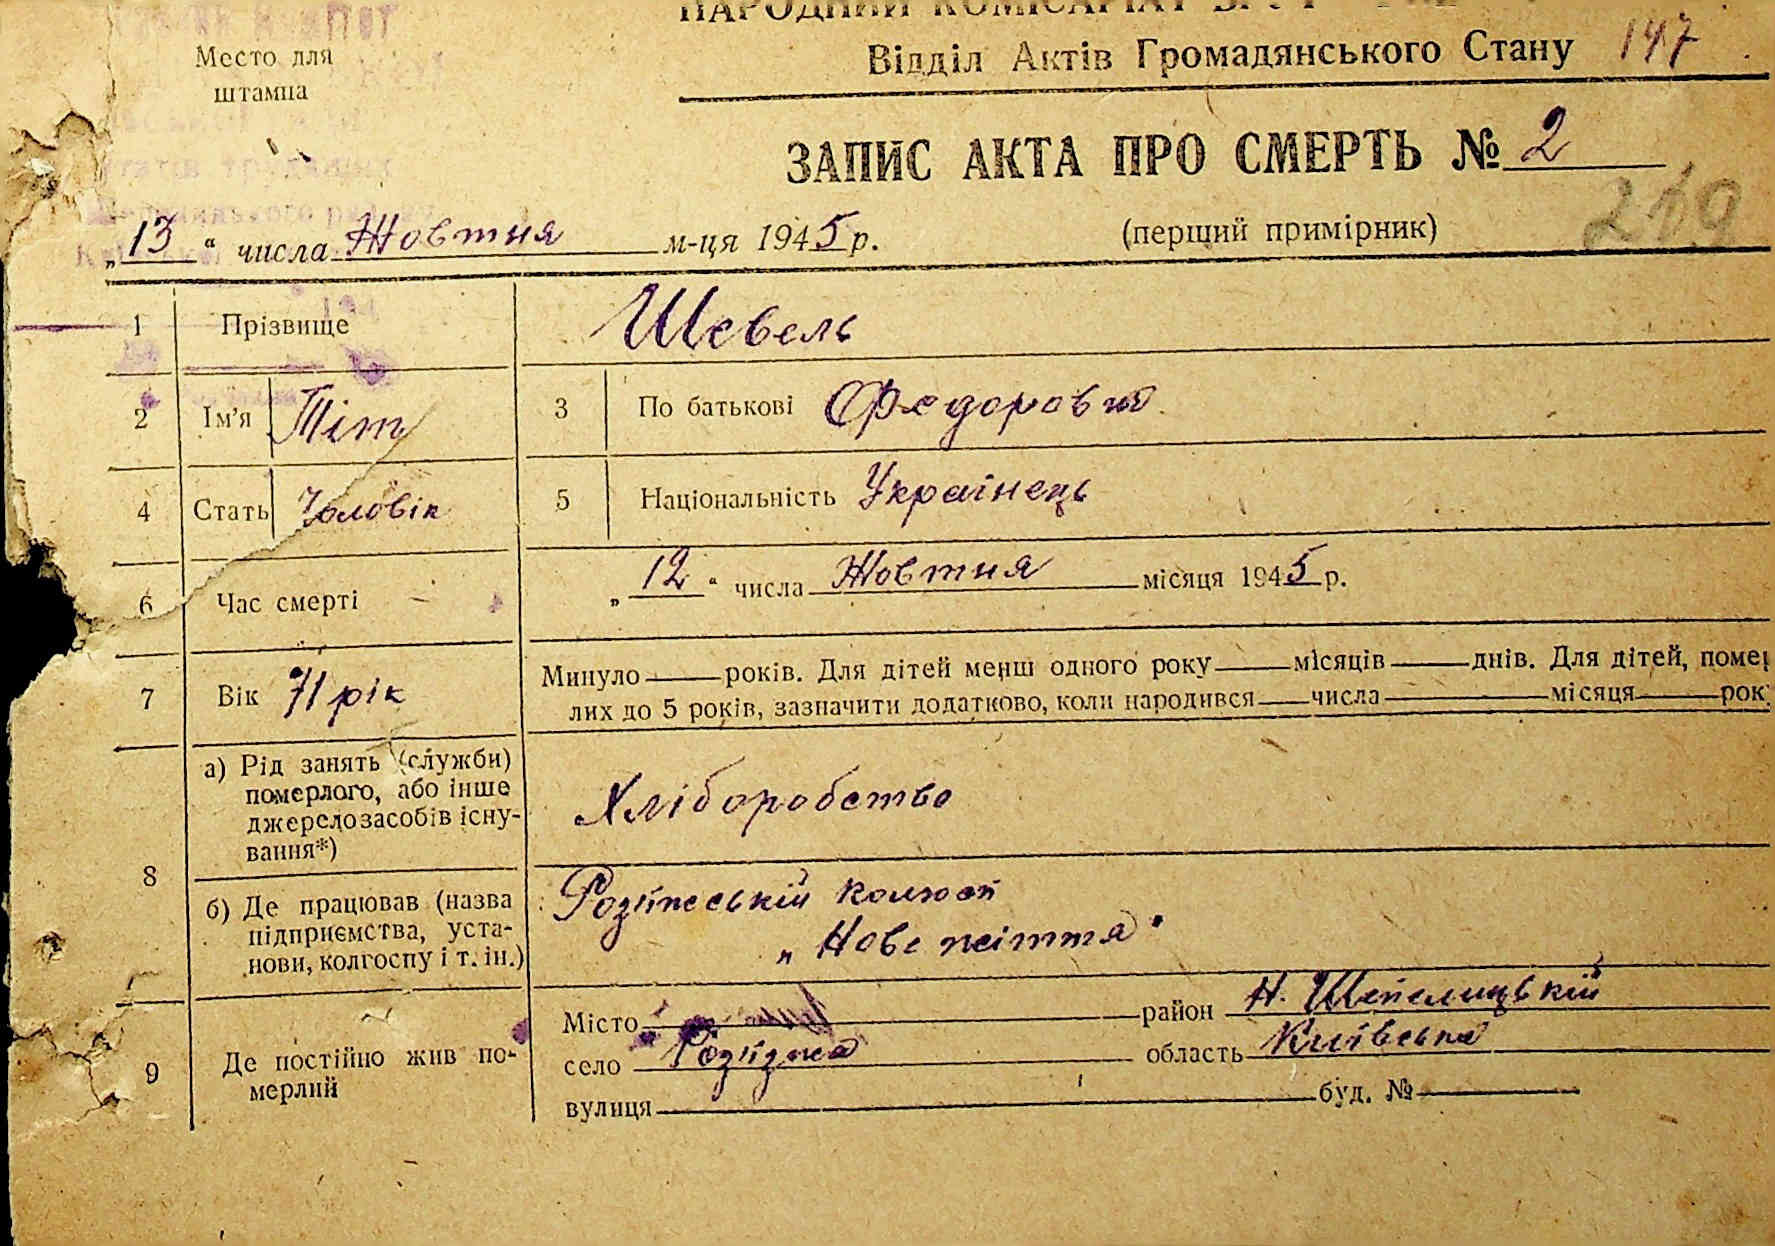 НАРОДНИЙ КОМІСАРІАТ
Место для
штампа
Відділ Актів Громадянського Стану 147
ЗАПИС АКТА ПРО СМЕРТЬ № 2
219
„13“ числа Жовтня м-ця 1945 р. (перщий примірник)
1 Прізвище Шевель
2 Ім'я Тіт 3 По батькові Федорович
4 Стать Чоловік 5 Національність Українець
6 Час смерті „12“ числа Жовтня місяця 1945 р.
7 Вік 71 рік Минуло років. Для дітей менш одного року місяців днів. Для дітей, помер
лих до 5 років, зазначити додатково, коли народився числа місяця рок
8 а) Рід занять (служби)
померлого, або інше
джерело засобів існу-
вання*)
Хліборобство
б) Де працював (назва
підприємства, уста-
нови, колгоспу і т. ін.)
колгосп
„Нове життя"
9 Де постійно жив по-
мерлий
Місто район Н. Шепелицькій
село область Київська
вулиця буд. №